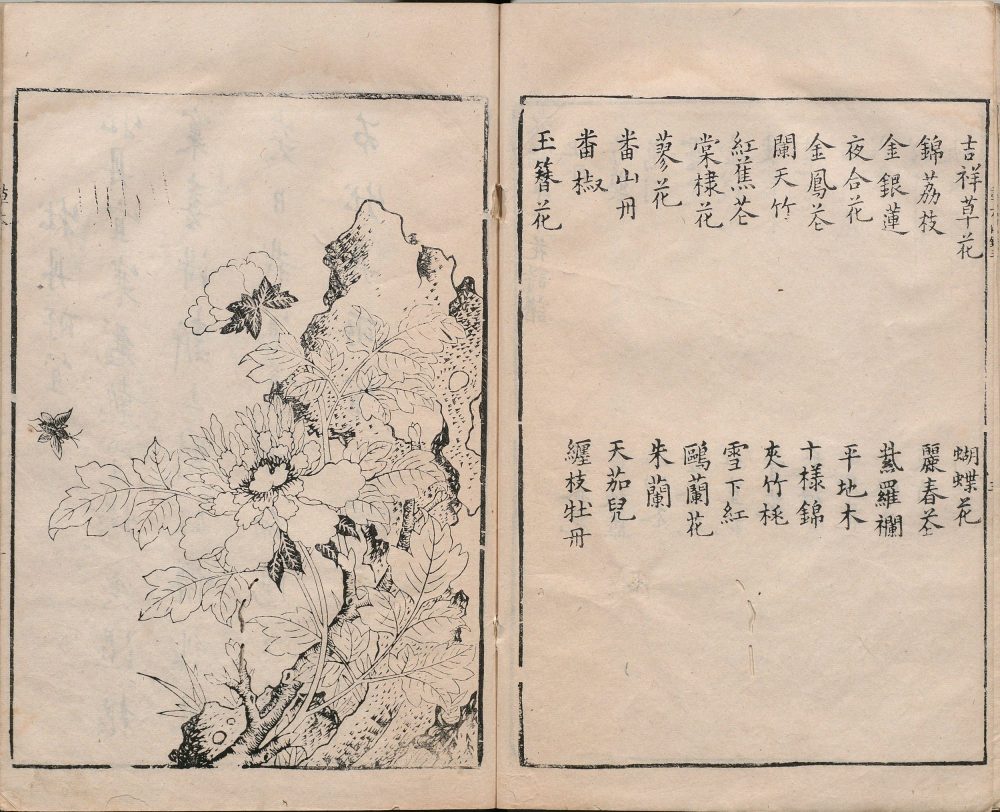 吉祥草花
錦荔枝
金銀蓮
夜合花
金鳳花
闌天竹
紅蕉花
棠棣花
蓼花
番山丹
番椒
玉簪花
蝴蝶花
麗春花
紫羅襴
平地木
十樣錦
夾竹桃
雪下紅
鷗蘭花
朱蘭
天茄兒
纏枝牡丹